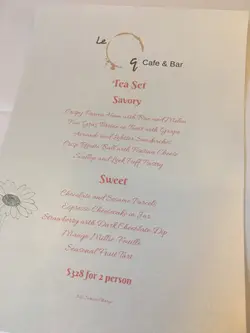 Le
g Cafe & Bar
Tea Set
Savory
Crispy Parma Ham with Pear and Melon
Four Types Cheese on Toast with Grape
Avocado and Sandwiches
Crisp Ball with Cheese
Scallop and Leek Puff Pastry
Sweet
Chocolate and Banana
Espresso Cheesecake in Jar
Strawberry with Dark Chocolate Dip
Mango
Seasonal Fruit Tart
$328 for 2 person